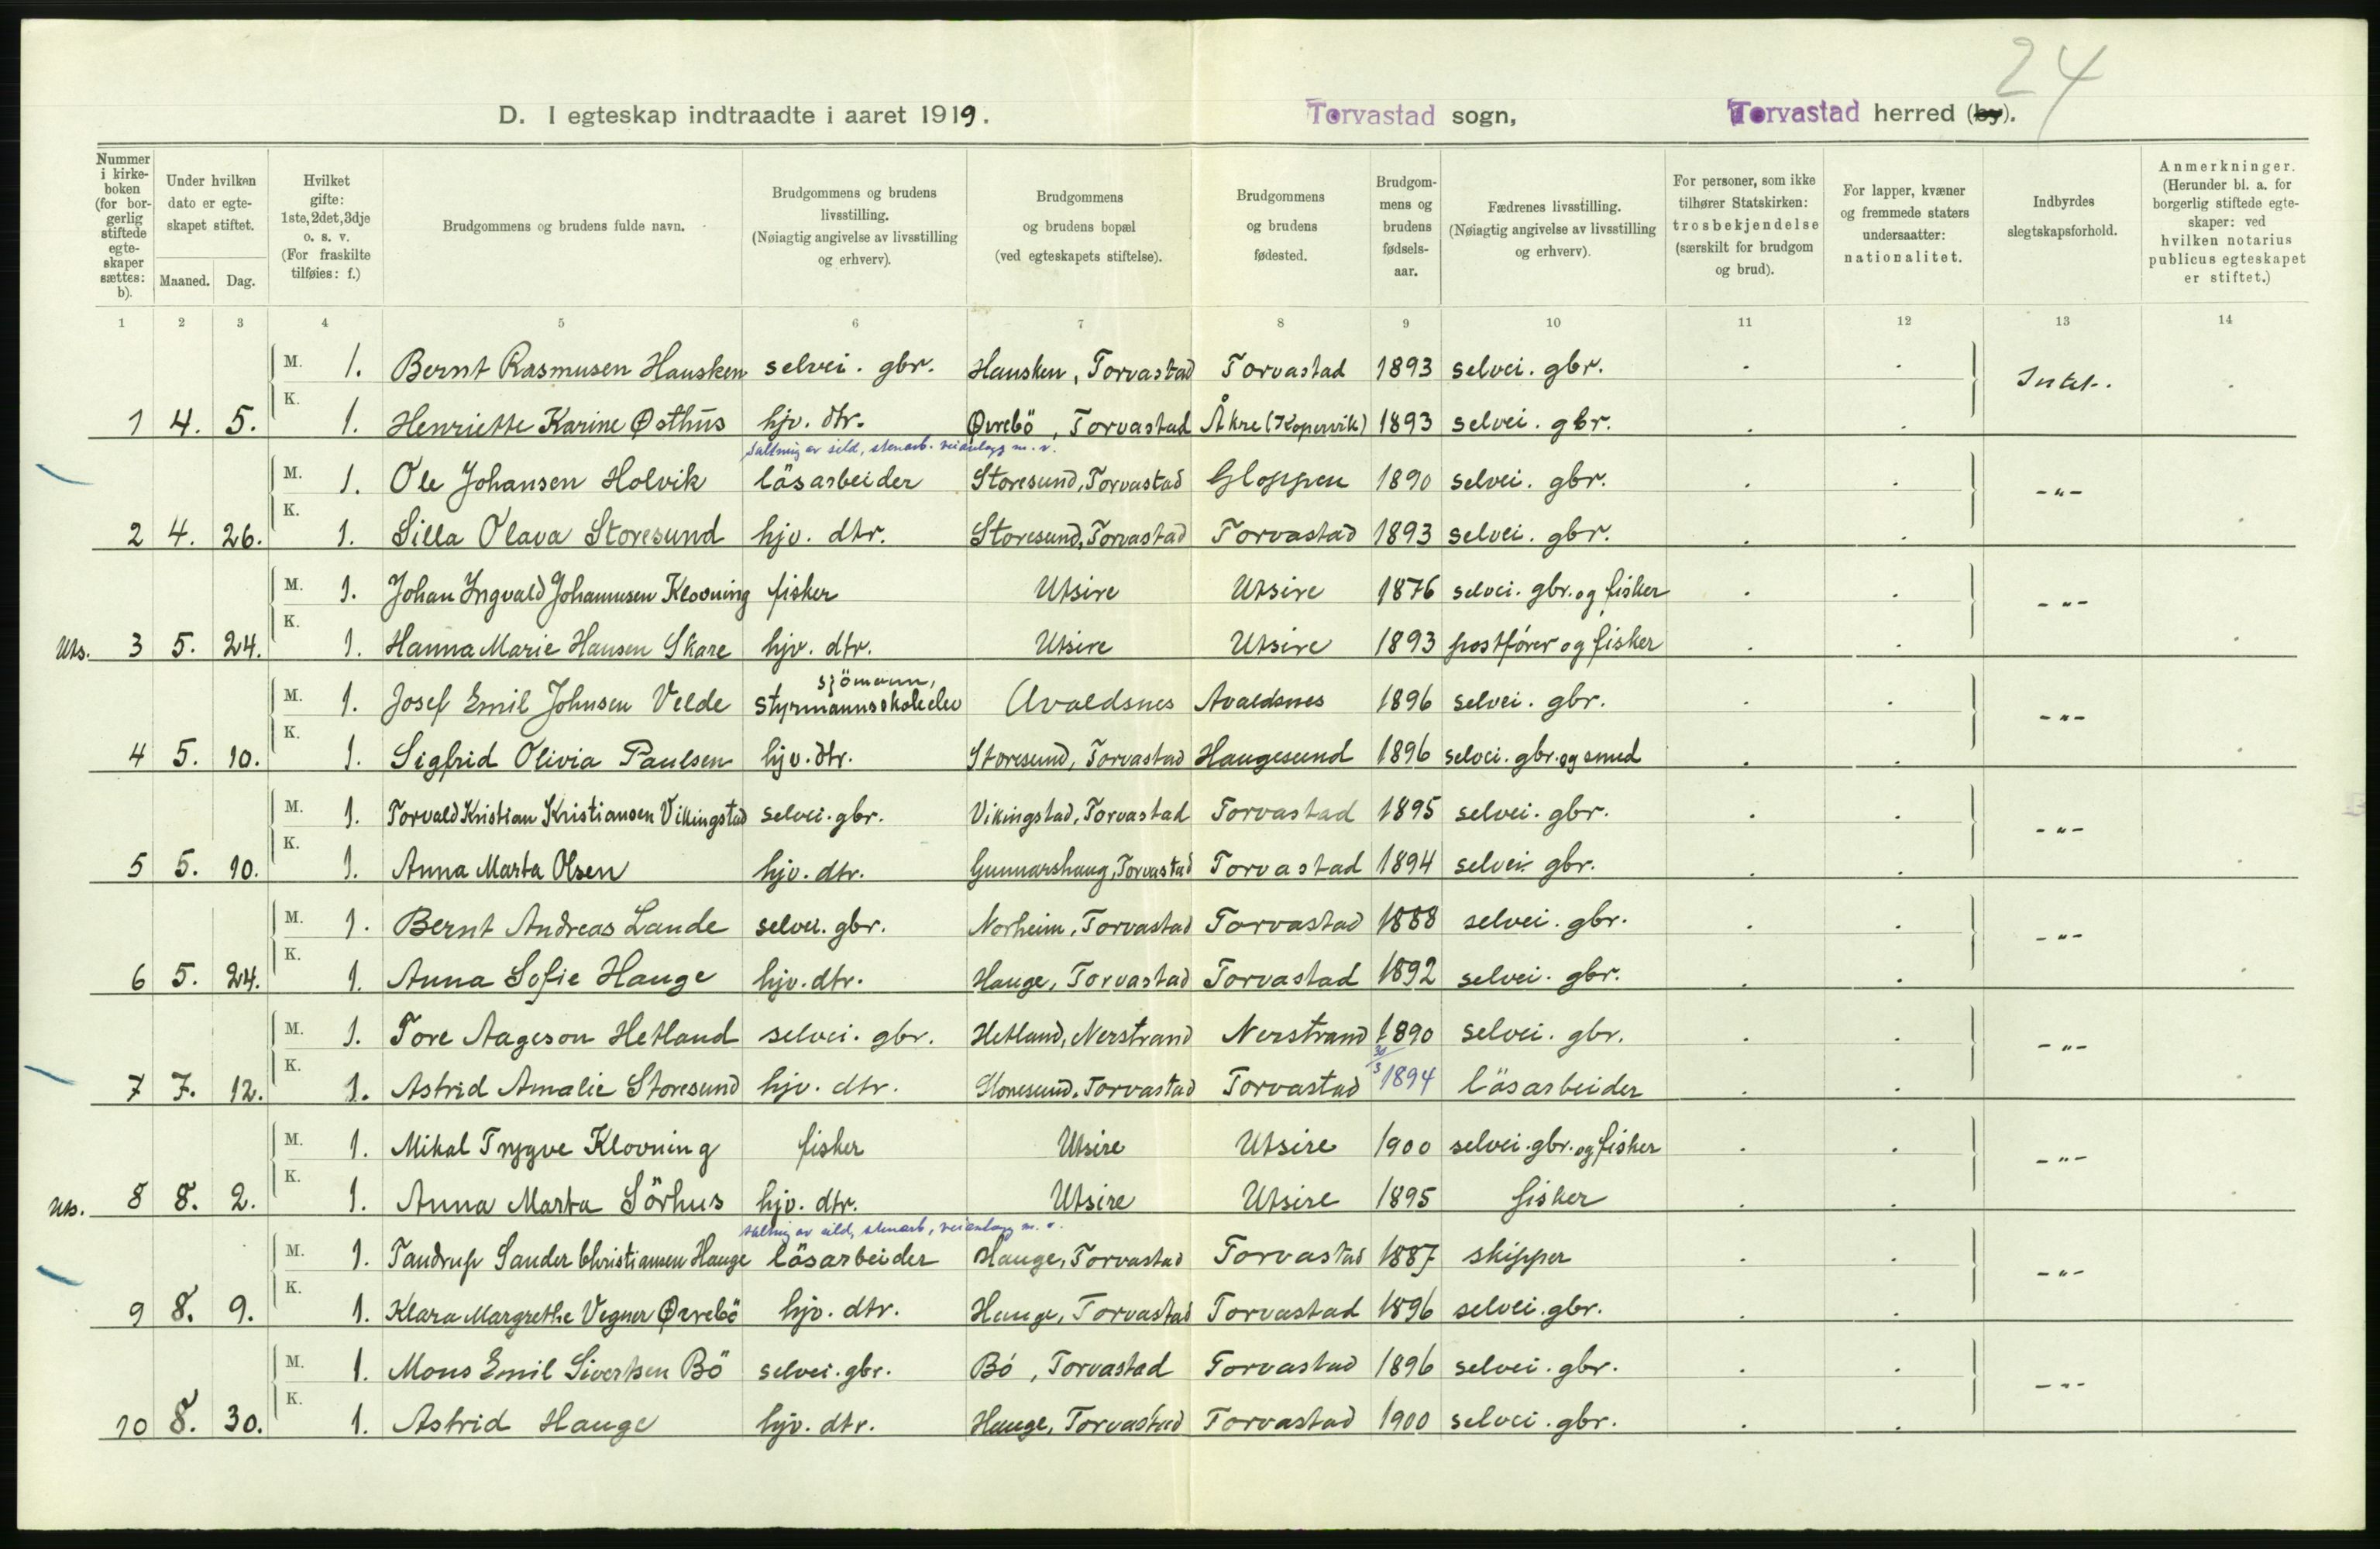 24
D. I egteskap indtraadte i aaret 1919. Torvastad sogn, Torvastad herred (by).
Nummer i kirke-boken (for bor-gerlig stiftede egte-skaper sættes: b).
Under hvilken dato er egte-skapet stiftet.
Maaned. Dag.
Hvilket gifte: 1ste, 2det, 3dje o. s. v. (For fraskilte tilføies: f.)
Brudgommens og brudens fulde navn.
Brudgommens og brudens livsstilling. (Nøiagtig angivelse av livsstilling og erhverv).
Brudgommens og brudens bopæl (ved egteskapets stiftelse).
Brudgommens og brudens fødested.
Brudgom-mens og brudens fødsels-aar.
Fædrenes livsstilling. (Nøiagtig angivelse av livsstilling og erhverv).
For personer, som ikke tilhører Statskirken: trosbekjendelse (særskilt for brudgom og brud).
For lapper, kvæner og fremmede staters undersaatter: nationalitet.
Indbyrdes slegtskapsforhold.
Anmerkninger. (Herunder bl. a. for borgerlig stiftede egte-skaper: ved hvilken notarius publicus egteskapet er stiftet.)
1 2 3 4 5 6 7 8 9 10 11 12 13 14
M. 1. Bernt Rasmusen Hausken selvei. gbr. Hausken, Torvastad Torvastad 1893 selvei. gbr. . . Intet. .
1 4. 5. K. 1. Henriette Karine Østhus hjv. dtr. Øvrebö, Torvastad Åkre (Kopervik) 1893 selvei. gbr. . .
saltning av sild, stenarb. veianlegg m. v.
M. 1. Ole Johansen Holvik läsarbeider Storesund, Torvastad Gloppen 1890 selvei. gbr. . . -"-
2 4. 26. K. 1. Silla Olava Storesund hjv. dtr. Storesund, Torvastad Torvastad 1893 selvei. gbr. . .
M. 1. Johan Ingvald Johannesen Klovning fisker Utsire Utsire 1876 selvei. gbr. og fisker . . -"-
Uts. 3 5. 24. K. 1. Hanna Marie Hansen Skare hjv. dtr. Utsire Utsire 1893 postfører og fisker . . .
sjömann,
M. 1. Josef Emil Johnsen Velde styrmannsskoleelev Avaldsnes Avaldsnes 1896 selvei. gbr. . . -"-
4 5. 10. K. 1. Sigfrid Olivia Paulsen hjv. dtr. Storesund, Torvastad Haugesund 1896 selvei. gbr. og smed . . .
M. 1. Torvald Kristian Kristiansen Vikingstad selvei. gbr. Vikingstad, Torvastad Torvastad 1895 selvei. gbr. . . -"-
5 5. 10. K. 1. Anna Marta Olsen hjv. dtr. Gunnarshaug, Torvastad Torvastad 1894 selvei gbr. . . .
M. 1. Bernt Andreas Lande selvei. gbr. Norheim, Torvastad Torvastad 1888 selvei. gbr. . . -"-
6 5. 24. K. 1. Anna Sofie Hauge hjv. dtr. Hauge, Torvastad Torvastad 1892 selvei. gbr. . . .
M. 1. Tore Aageson Hetland selvei. gbr. Hetland, Nerstrand Nerstrand 1890 selvei. gbr. . . -"-
7 7. 12. K. 1. Astrid Amalie Storesund hjv. dtr. Storesund, Torvastad Torvastad 30/3 1894 läsarbeider . . .
M. 1. Mikal Trygve Klovning fisker Utsire Utsire 1900 selvei. gbr. og fisker . . -"-
Uts. 8 8. 2. K. 1. Anna Marta Sörhus hjv. dtr. Utsire Utsire 1895 fisker . . .
saltning av sild, stenarb, veianlegg m. v.
M. 1. Tandrup Sander Christiansen Hauge läsarbeider Hauge, Torvastad Torvastad 1887 skipper . . -"-
9 8. 9. K. 1. Klara Margrethe Vegner Øvrebö hjv. dtr. Hauge, Torvastad Torvastad 1896 selvei. gbr. . . .
M. 1. Mons Emil Sivertsen Bö selvei. gbr. Bö, Torvastad Torvastad 1896 selvei. gbr. . . -"-
10 8. 30. K. 1. Astrid Hauge hjv. dtr. Hauge, Torvastad Torvastad 1900 selvei. gbr. . . .